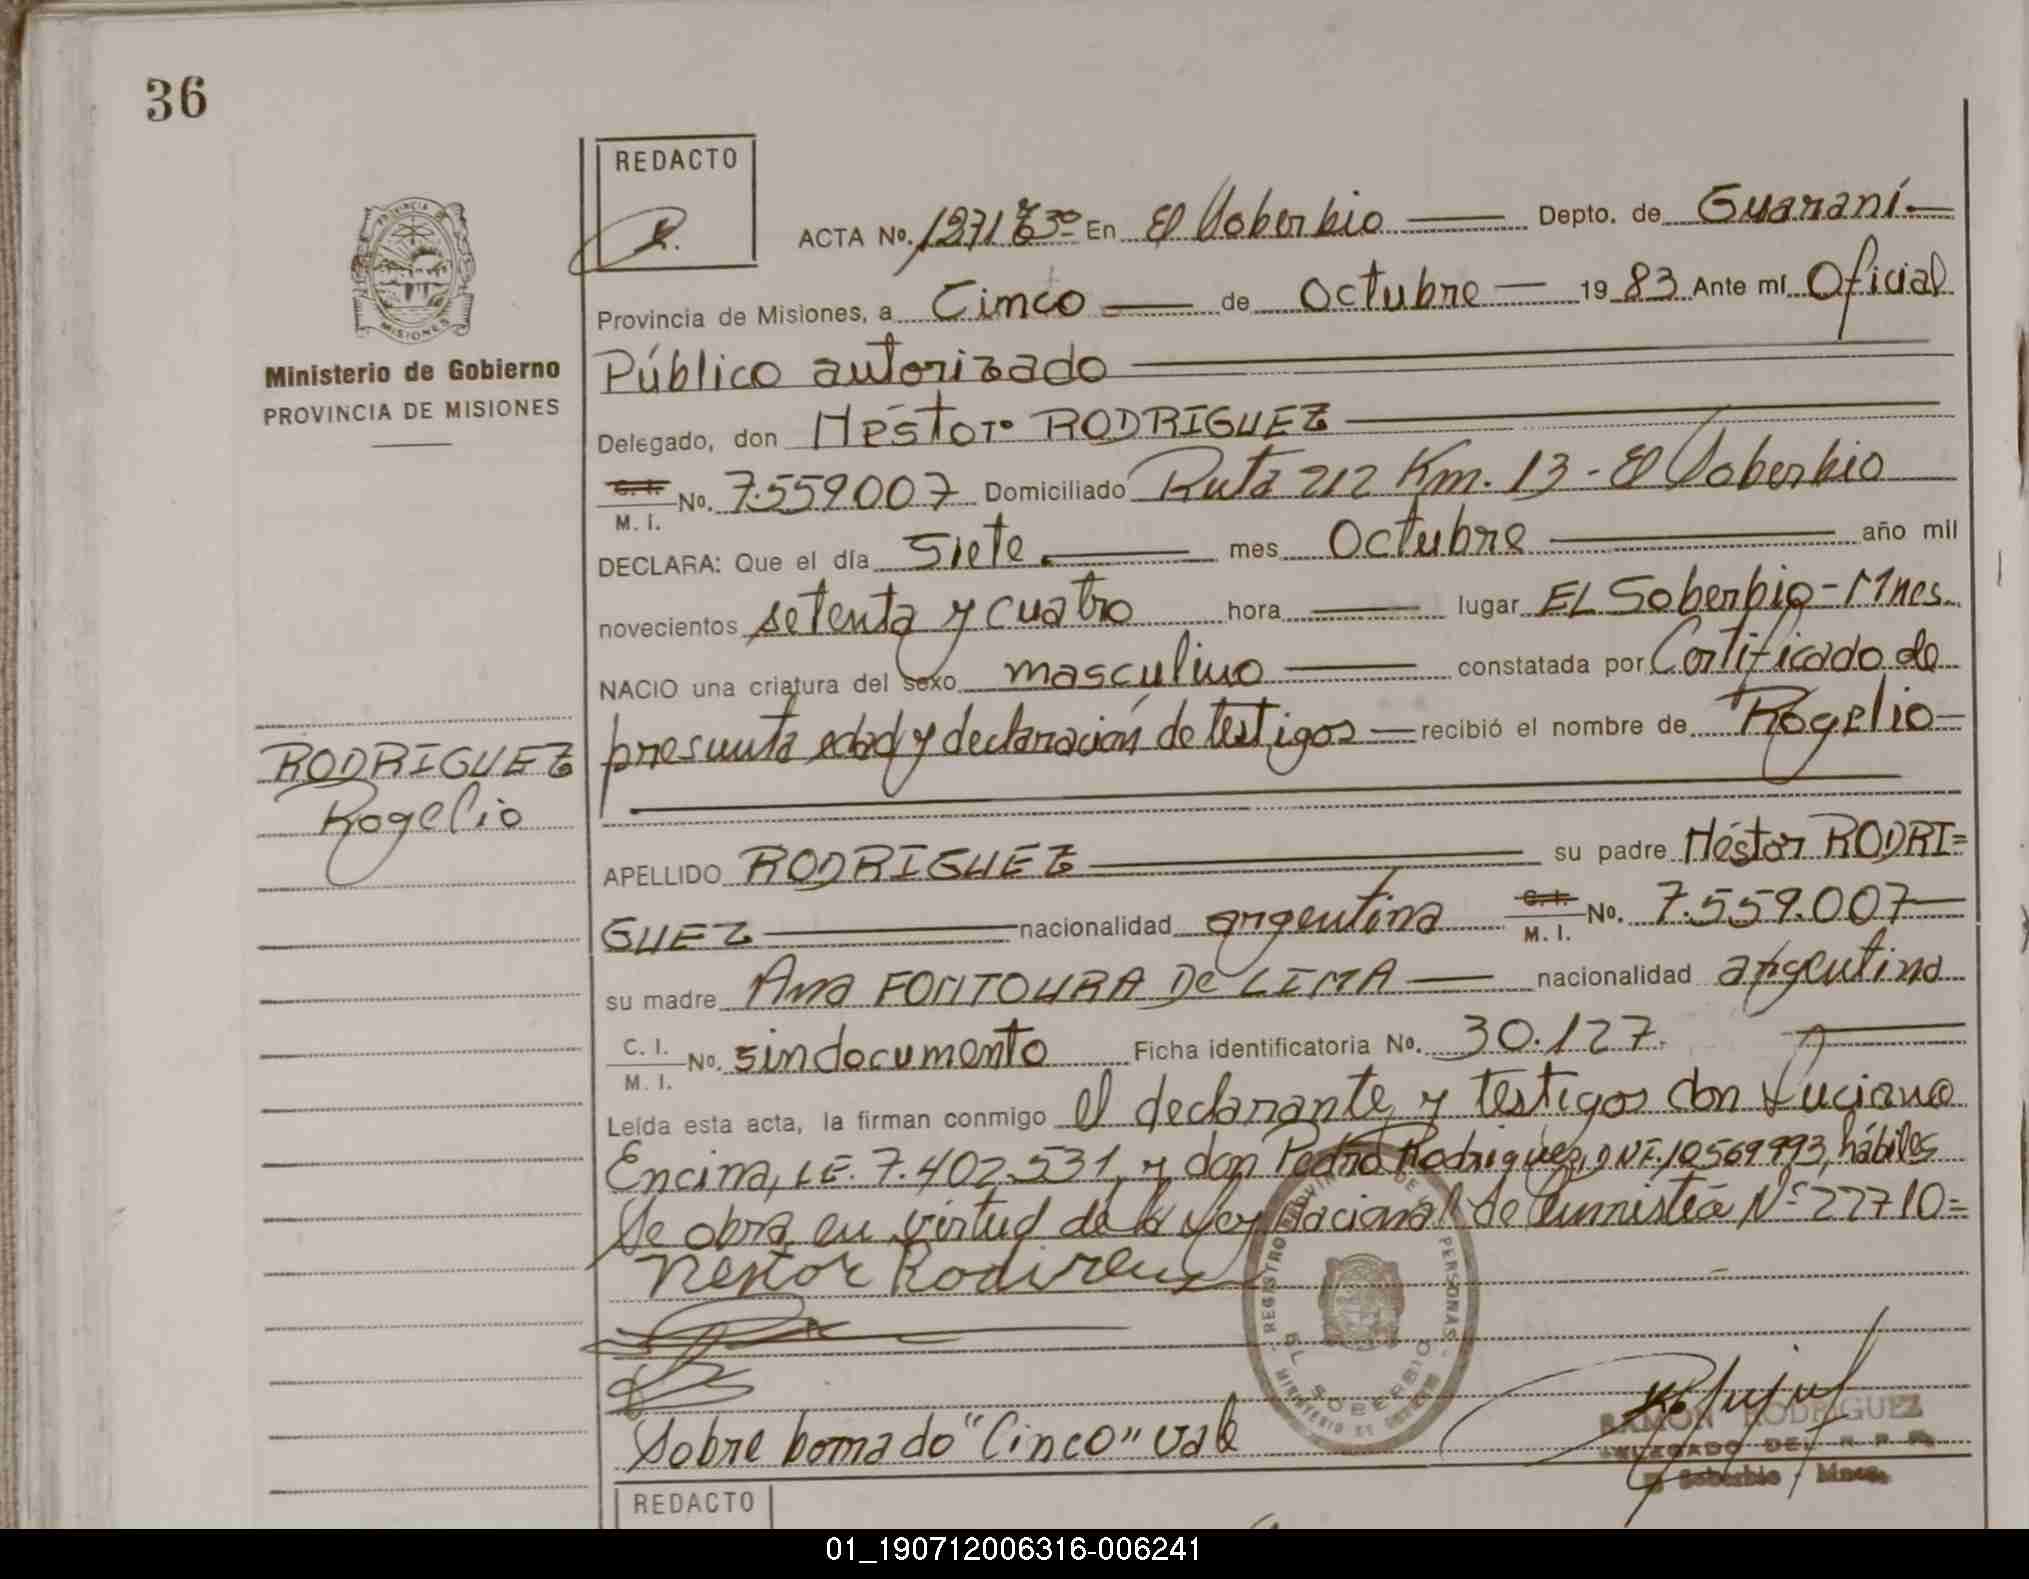 36
REDACTO
ACTA No. 1271 T 3º En El Soberbio Depto. de Guaraní
Provincia de Misiones, a Cinco de Octubre 1983 Ante mí Oficial
Ministerio de Gobierno
PROVINCIA DE MISIONES
Público autorizado
Delegado, don Héstor RODRIGUEZ
C. I. / M. I. No. 7.559007 Domiciliado Ruta 212 Km. 13 - El Soberbio
DECLARA: Que el día Siete mes Octubre año mil
novecientos setenta y cuatro hora lugar EL Soberbio - Mnes.
NACIO una criatura del sexo masculino constatada por Certificado de
presunta edad y declaración de testigos recibió el nombre de Rogelio
RODRIGUEZ
Rogelio
APELLIDO RODRIGUEZ su padre Héstor RODRI=
GUEZ nacionalidad argentina C. I. / M. I. No. 7.559.007
su madre Ana FONTOURA De LIMA nacionalidad argentina
C. I. / M. I. No. sindocumento Ficha identificatoria No. 30.127.
Leída esta acta, la firman conmigo el declarante y testigos don Luciano
Encina, LE. 7.402.531, y don Pedro Rodriguez, DNI. 10569993, hábiles
Se obra en virtud de la Ley Nacional de Amnistía Nº 22710=
Nestor Rodireuz
Sobre borrado "Cinco" vale
REGISTRO PROVINCIAL DE PERSONAS
EL SOBERBIO
MINISTERIO DE GOBIERNO
RAMON RODRIGUEZ
DELEGADO DEL R. P. P.
El Soberbio - Mnes.
REDACTO
01_190712006316-006241